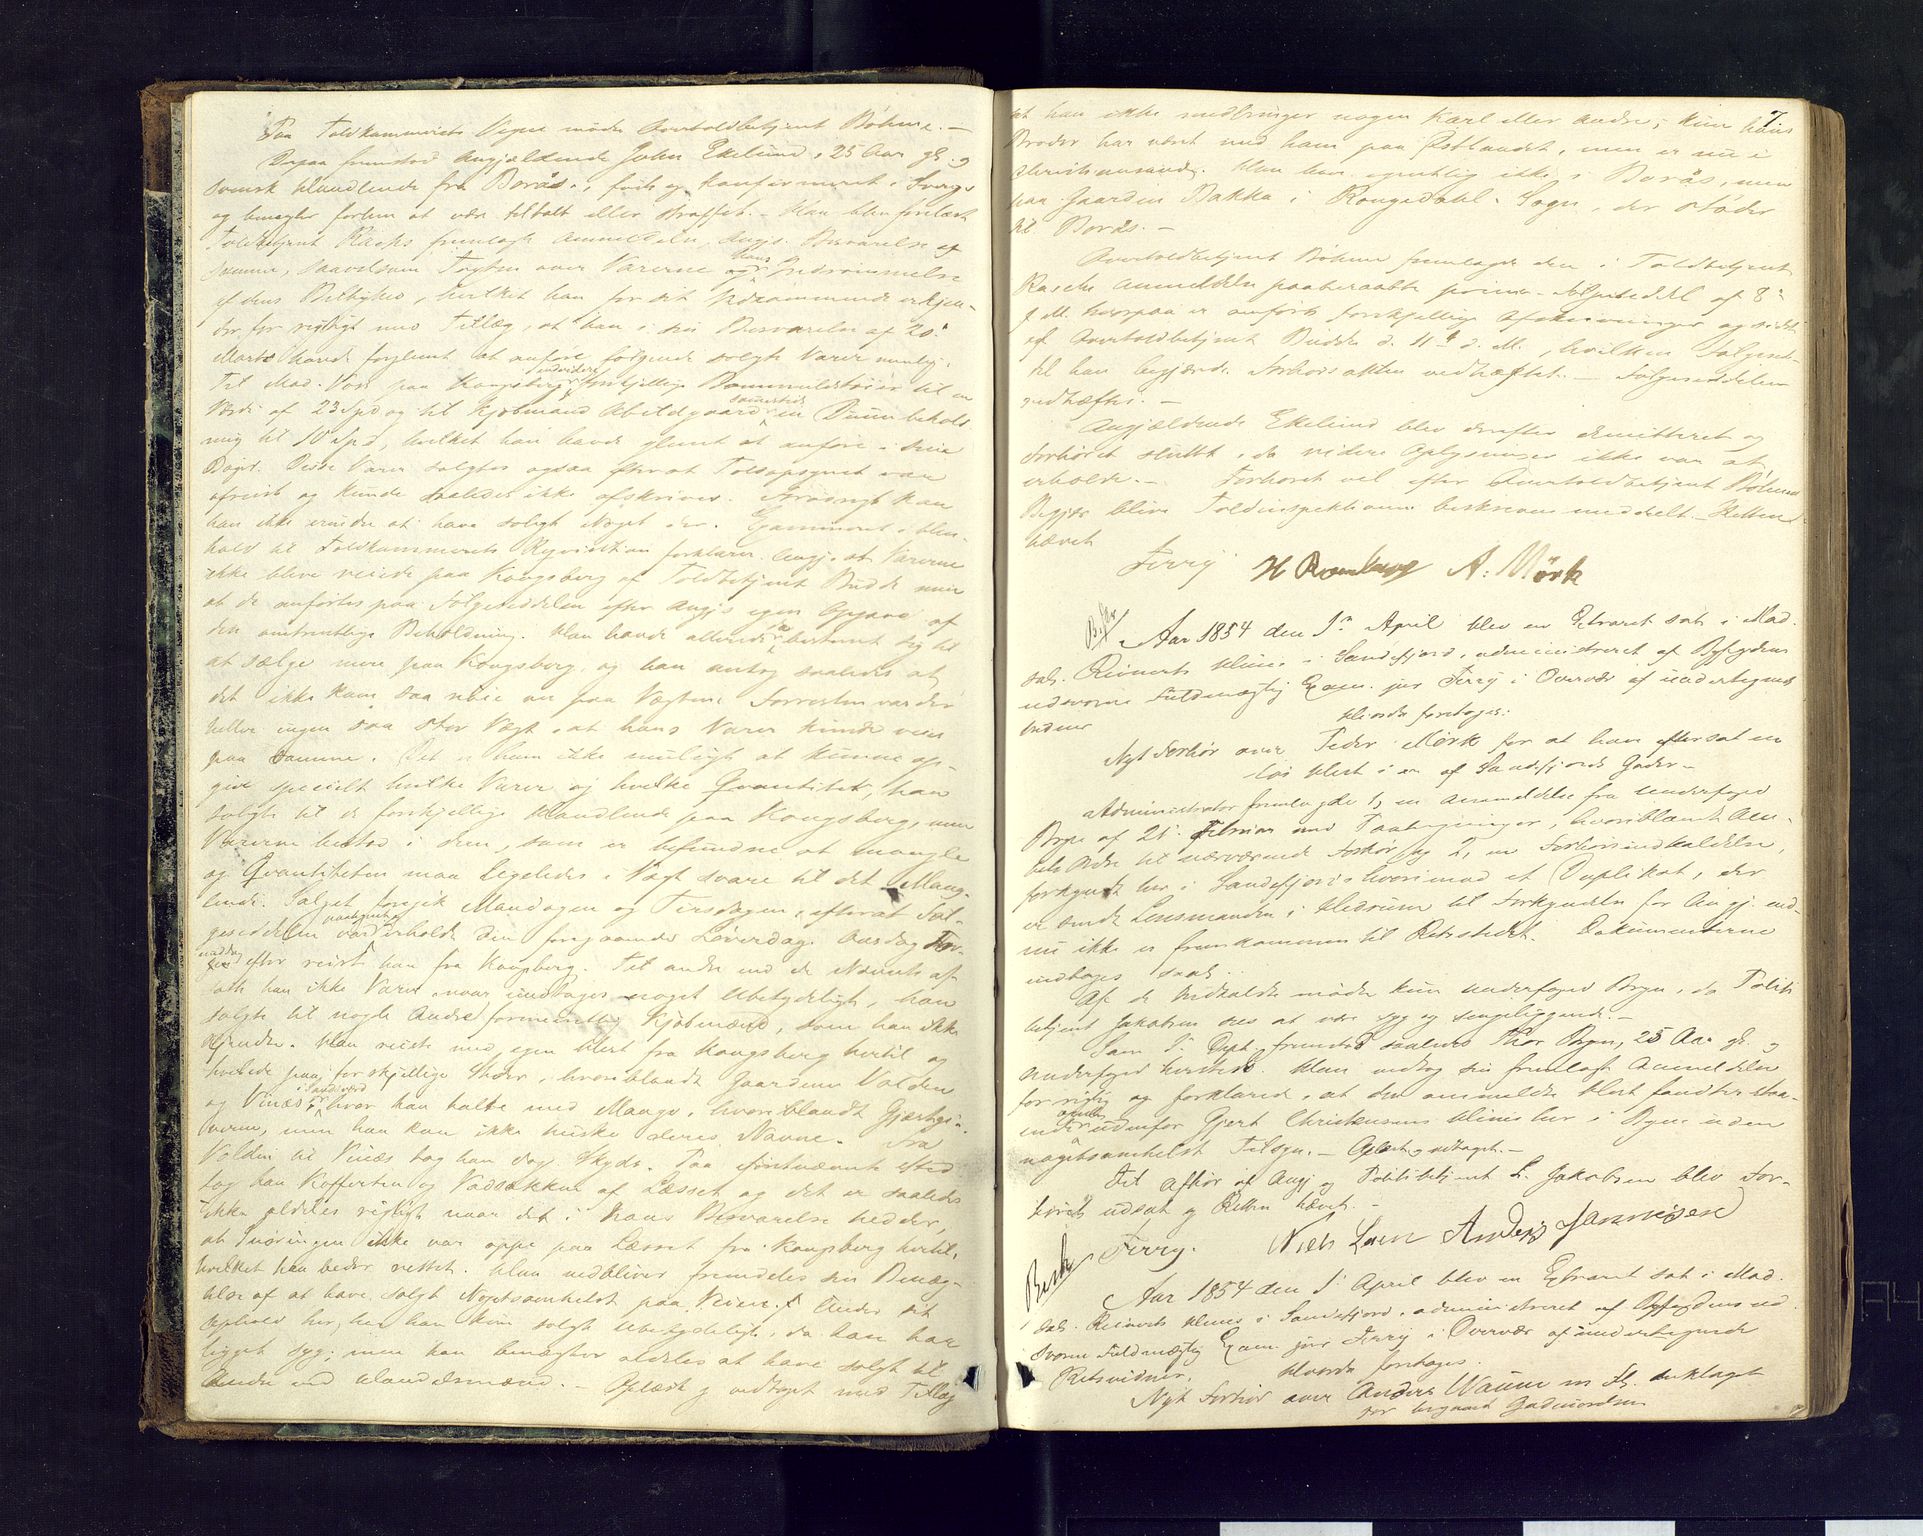 Paa Toldkammerets Vegne mødte Overtoldbetjent Bøhme. —
Derpaa fremstod Angjældende John Ekelund, 25 Aar gl. og
svensk Handlende fra Borås, født og konfirmeret i Sverge
og benægter forhen at være tiltalt eller straffet. — Han blev forelæst
Toldbetjent Rasks fremlagte Anmeldelse, Angjs. Besvarelse af
samme, saavelsom Taxten over Varerne og hans Indrømmelse
af dens Rigtighed, hvilket han for sit Vedkommende erkjen-
der for rigtigt med Tillæg, at han i sin Besvarelse af 20de
Marts havde forglemt at anføre følgende solgte Varer nemlig:
Til Mad. Voss paa Kongsberg endvidere forskjellige Bommuldstøier til en
Værdi af 23 Spd og til Kjøbmand Abildgaard sammesteds en
mig til 10 Spd, hvilket han havde glemt at anføre i sine
Bøger. Disse Varer solgtes ogsaa efterat Toldopsynet var
afreist og kunde saaledes ikke afskrives. Forøvrigt kan
han ikke erindre at have solgt Noget der. I Hen-
hold til Toldkammerets Reqvisition forklarer Angj. at Varerne
ikke bleve veiede paa Kongsberg af Toldbetjent Budde men
at de anførtes paa Følgeseddelen efter Angjs egen Opgave af
den omtrentlige Beholdning. Han havde allerede da bestemt sig til
at sælge mere paa Kongsberg og han antog saaledes at
det ikke kom saa nøie an paa Vægten. Forresten var der
heller ingen saa stor Vægt, at hans Varer kunde veies
paa samme. Det er ham ikke muligt at kunne op-
give specielt hvilke Varer og hvilke Qvantitet, han
solgte til de forskjellige Handlende paa Kongsberg, men
Varerne bestod i dem, som er befundne at mangle
og Qvantiteten maa ligeledes i Vægt svare til det Mang-
lende. Salget foregik Mandagen og Tirsdagen, efterat Føl-
geseddelen var erholdt den foregaaende Løverdag.
efter reist han fra Kongsberg. Til andre end de Nævnte af-
satte han ikke Varer, naar undtages noget Ubetydeligt, han
solgte til nogle Andre formentlig Kjøbmænd, som han ikke
kjendte. Han reiste med egen Hest fra Kongsberg hertil og
hvilede paa forskjellige Steder, hvoriblandt Gaardene Valden
og Vinæs i Sandeherred, hvor han talte med Mange, hvoriblandt
men han kan ikke huske deres Navne. Fra
Valden til Vinæs tog han dog Skyds. Paa førstnævnte Sted
tog han Kofferten og Vadsækken af Læsset og det er saaledes
ikke aldeles rigtigt naar det i hans Besvarelse hedder,
at Snøringen ikke var oppe paa Læsset fra Kongsberg hertil,
hvilket han beder rettet. Han vedbliver fremdeles sin Benæg-
telse af at have solgt Nogetsomhelst paa Veien. Under sit
Ophold her, har han kun solgt Ubetydeligt, da han har
ligget syg; men han benægter aldeles at have solgt til
Andre end Handelsmænd. — Oplæst og vedtaget med Tillæg
7
at han ikke medbringer nogen Karl eller Andre; kun hans
Broder har været med ham paa Østlandet, men er nu i
Christiansand. Han bor egentlig ikke i Borås, men
paa Gaarden Bakka i Kongsdahl Sogn, der støder
til Borås. —
Overtoldbetjent Bøhme fremlagde den i Toldbetjent
Rasks Anmeldelse paaberaabte prima Følgeseddel af 8de
f. M. hvorpaa er anført forskjellige Afskrivninger og sidst
af Overtoldbetjent Budde d. 11te d. M., hvilken Følgesed-
del han begjærede Forhørsakten vedhæftet. — Følgeseddelen
vedhæftes. —
Angjældende Ekelund blev derefter demitteret og
Forhøret sluttet, da videre Oplysninger ikke var at
erholde. — Forhøret vil efter Overtoldbetjent Bøhmes
Begjær blive Toldinspektionen beskreven meddelt. — Retten
hævet
Ferry H Romberg A. Mörk
Aar 1854 den 1ste April blev en Extraret sat i Mad.
sal. Reinerts Huus i Sandefjord, administreret af Byfogdens
edsvorne Fuldmægtig Exam. jur Ferry i Overvær af undertegnede
Vidner
Hvorda foretoges:
Nyt Forhør over Peder Mørk for at han efterlod en
løs Hest i en af Sandefjords Gader —
Administrator fremlagde 1, en Anmeldelse fra Underfoged
Bryn af 21de Februar med Paategninger, hvoriblandt Am-
tets Ordre til nærværende Forhør og 2, en Forhørsindkaldelse,
forkyndt her i Sandefjord hvorimod et Duplikat, der
er sendt Lensmanden i Hedrum til Forkyndelse for Angj. end-
nu ikke er fremkommen til Retsstedet. Dokumenterne
indtages saal:
Af de Indkaldte mødte kun Underfoged Bryn, da Politi-
betjent Jakobsen sees at være syg og sengeliggende. —
Som 1ste Dept. fremstod saaledes Thor Bryn, 25 Aar gl. og
Underfoged hersteds. Han vedtog sin fremlagte Anmeldelse
for rigtig og forklarede, at den anmeldte Hest fandtes staa-
ende udenfor Gjert Christensens Huus her i Byen uden
nogetsomhelst Tilsyn. — Oplæst, vedtaget. —
Til Afhør af Angj og Politibetjent L. Jakobsen blev For-
høret udsat og Retten hævet. —
Ferry. Niels Larsen Anders Jannesen
Besk
Aar 1854 den 1ste April blev en Extraret sat i Mad.
sal. Reinerts Huus i Sandefjord, administreret af Byfogdens ed-
svorne Fuldmægtig Exam. jur Ferry i Overvær af undertegnede
Retsvidner.
Hvorda foretoges.
Nyt Forhør over Anders m. Fl. anklaget
for begaaet Gadeuorden